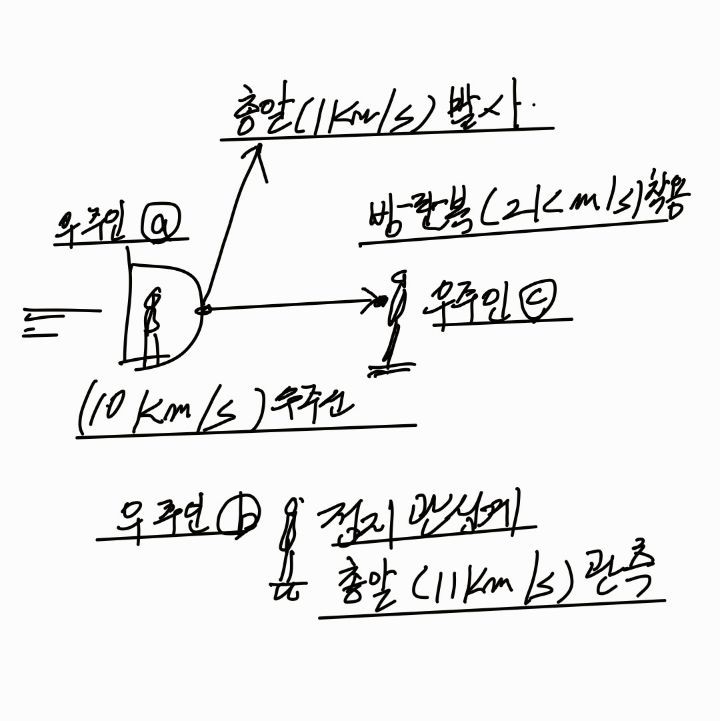 총알(1Km/s) 발사.
방탄복(2Km/s)착용
우주인 ⓐ
우주인 ⓒ
(10Km/s)우주선
우주인 ⓑ 정지 관성계
총알 (11Km/s) 관측